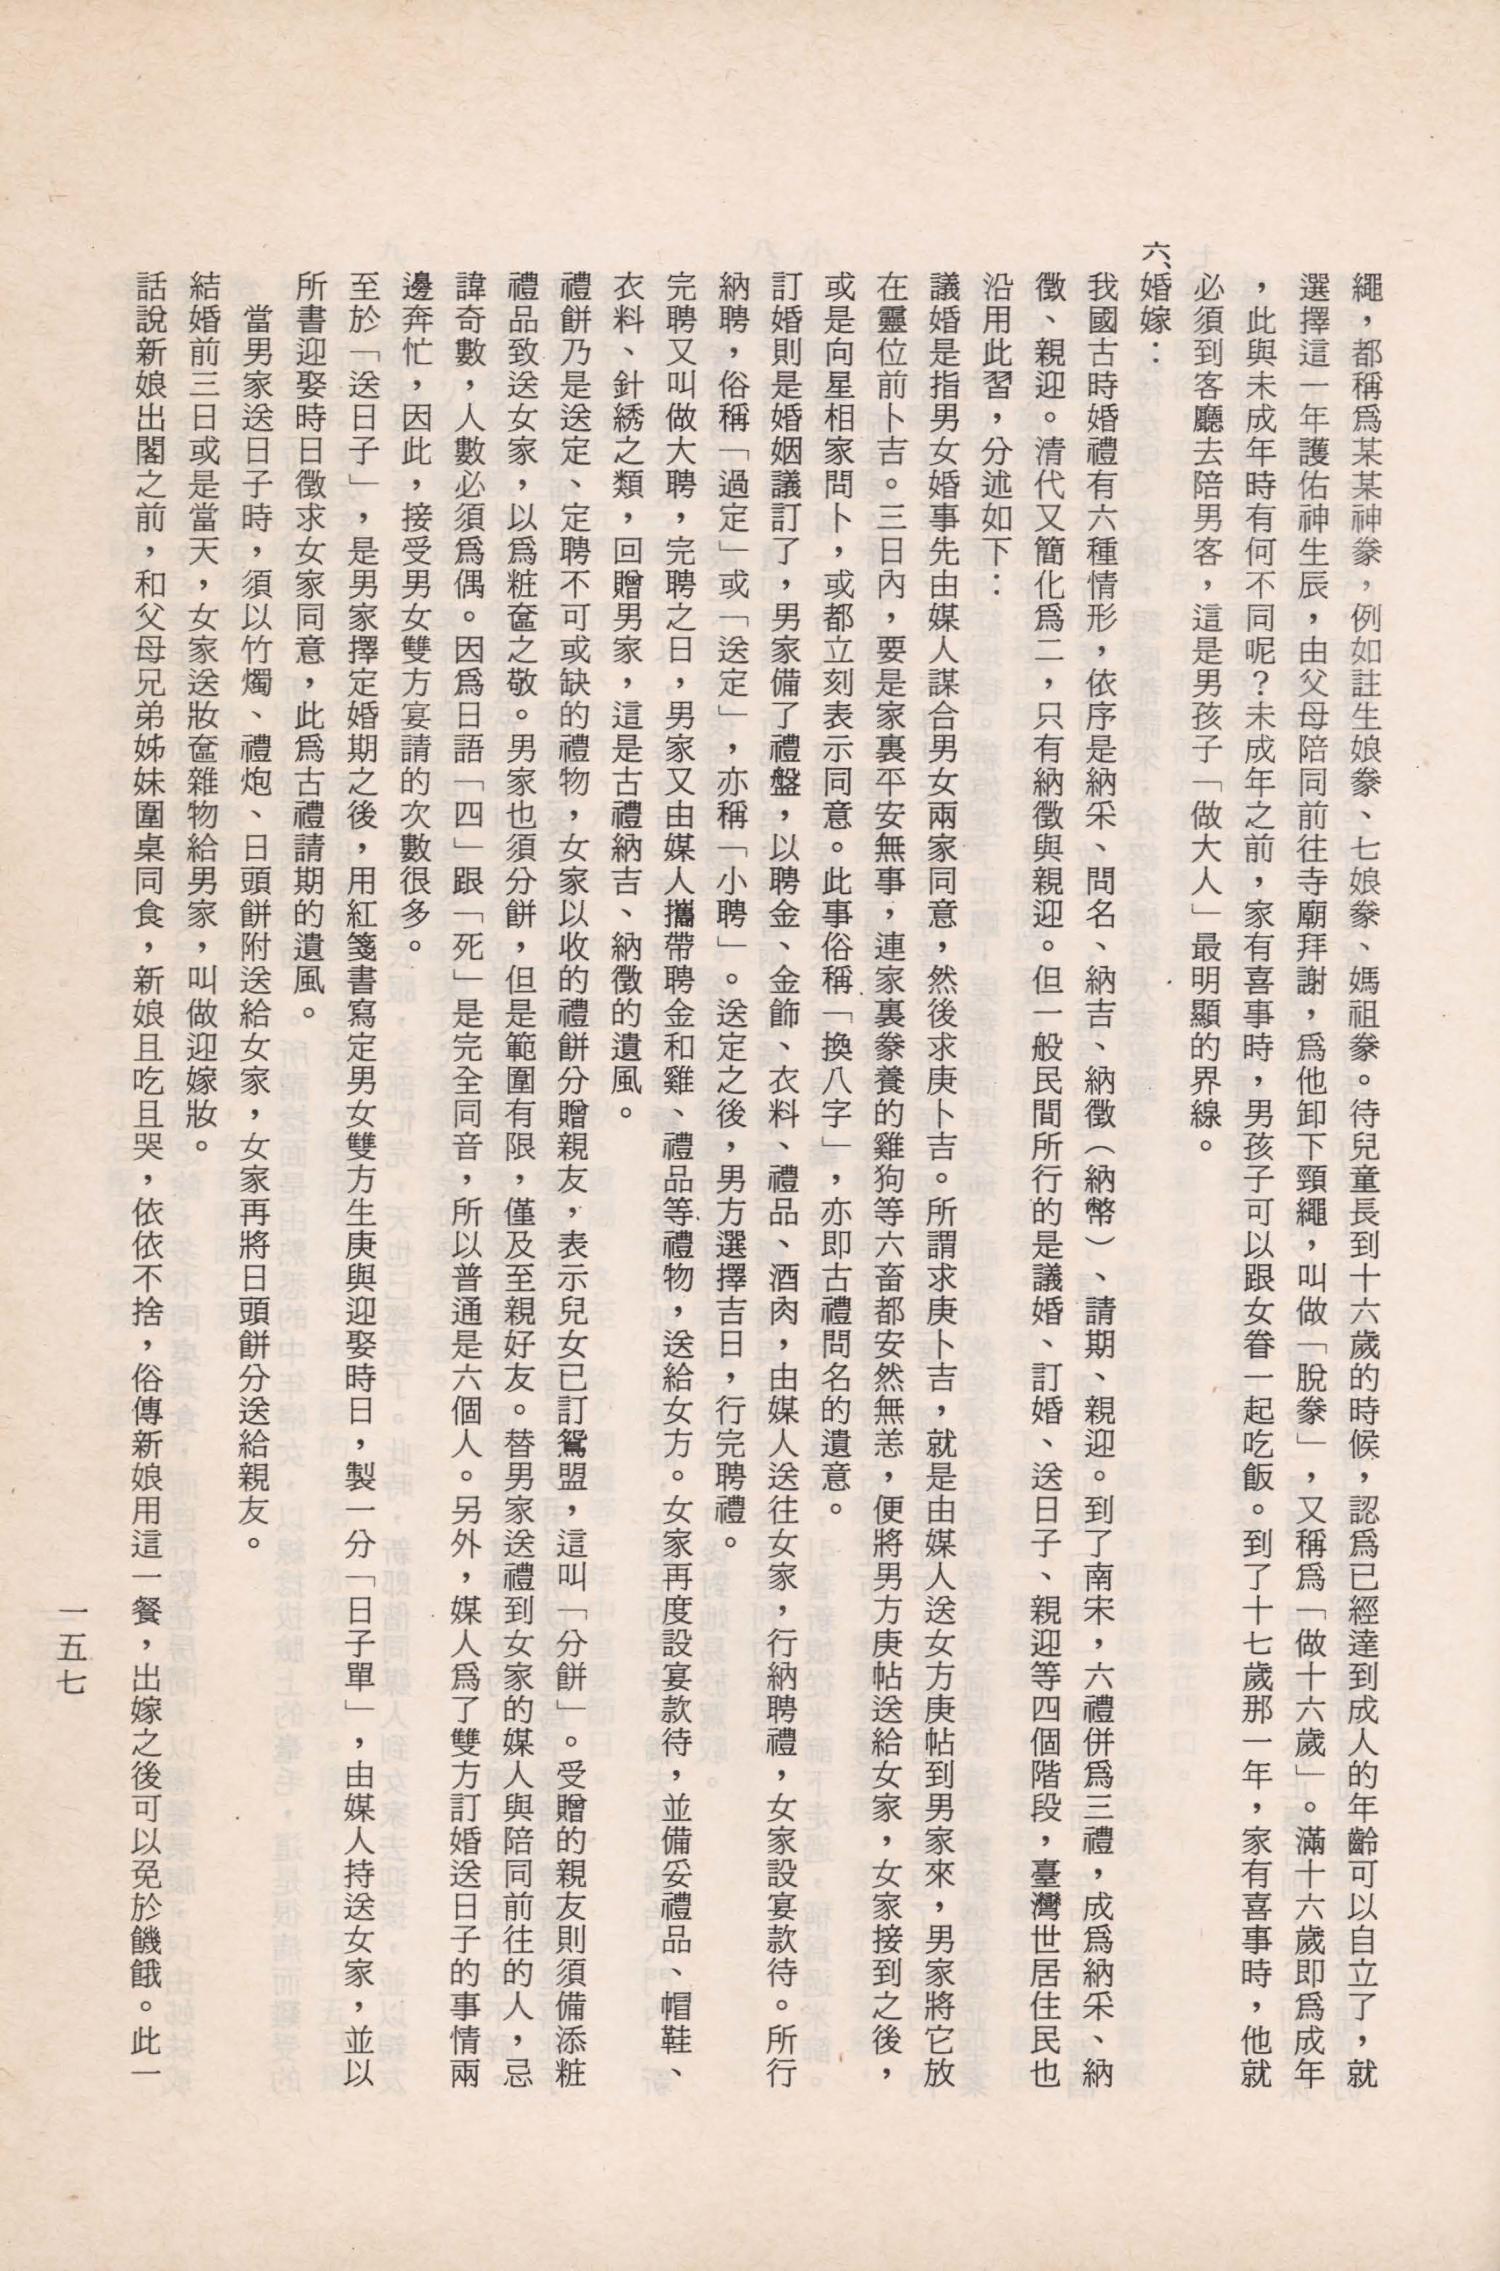 繩，都稱爲某某神豢，例如註生娘豢、七娘豢、媽祖豢。待兒童長到十六歲的時候，認爲已經達到成人的年齡可以自立了，就
選擇這一年護佑神生辰，由父母陪同前往寺廟拜謝，爲他卸下頸繩，叫做「脫豢」，又稱爲「做十六歲」。滿十六歲即爲成年
，此與未成年時有何不同呢？未成年之前，家有喜事時，男孩子可以跟女眷一起吃飯。到了十七歲那一年，家有喜事時，他就
必須到客廳去陪男客，這是男孩子「做大人」最明顯的界線。
六、婚嫁：
我國古時婚禮有六種情形，依序是納采、問名、納吉、納徵（納幣）、請期、親迎。到了南宋，六禮併爲三禮，成爲納采、納
徵、親迎。清代又簡化爲二，只有納徵與親迎。但一般民間所行的是議婚、訂婚、送日子、親迎等四個階段，臺灣世居住民也
沿用此習，分述如下：
議婚是指男女婚事先由媒人謀合男女兩家同意，然後求庚卜吉。所謂求庚卜吉，就是由媒人送女方庚帖到男家來，男家將它放
在靈位前卜吉。三日內，要是家裏平安無事，連家裏豢養的雞狗等六畜都安然無恙，便將男方庚帖送給女家，女家接到之後，
或是向星相家問卜，或都立刻表示同意。此事俗稱「換八字」，亦即古禮問名的遺意。
訂婚則是婚姻議訂了，男家備了禮盤，以聘金、金飾、衣料、禮品、酒肉，由媒人送往女家，行納聘禮，女家設宴款待。所行
納聘，俗稱「過定」或「送定」，亦稱「小聘」。送定之後，男方選擇吉日，行完聘禮。
完聘又叫做大聘，完聘之日，男家又由媒人攜帶聘金和雞、禮品等禮物，送給女方。女家再度設宴款待，並備妥禮品、帽鞋、
衣料、針綉之類，回贈男家，這是古禮納吉、納徵的遺風。
禮餅乃是送定、定聘不可或缺的禮物，女家以收的禮餅分贈親友，表示兒女已訂鴛盟，這叫「分餅」。受贈的親友則須備添粧
禮品致送女家，以爲粧奩之敬。男家也須分餅，但是範圍有限，僅及至親好友。替男家送禮到女家的媒人與陪同前往的人，忌
諱奇數，人數必須爲偶。因爲日語「四」跟「死」是完全同音，所以普通是六個人。另外，媒人爲了雙方訂婚送日子的事情兩
邊奔忙，因此，接受男女雙方宴請的次數很多。
至於「送日子」，是男家擇定婚期之後，用紅箋書寫定男女雙方生庚與迎娶時日，製一分「日子單」，由媒人持送女家，並以
所書迎娶時日徵求女家同意，此爲古禮請期的遺風。
當男家送日子時，須以竹燭、禮炮、日頭餅附送給女家，女家再將日頭餅分送給親友。
結婚前三日或是當天，女家送妝奩雜物給男家，叫做迎嫁妝。
話說新娘出閣之前，和父母兄弟姊妹圍桌同食，新娘且吃且哭，依依不捨，俗傳新娘用這一餐，出嫁之後可以免於饑餓。此一
一五七